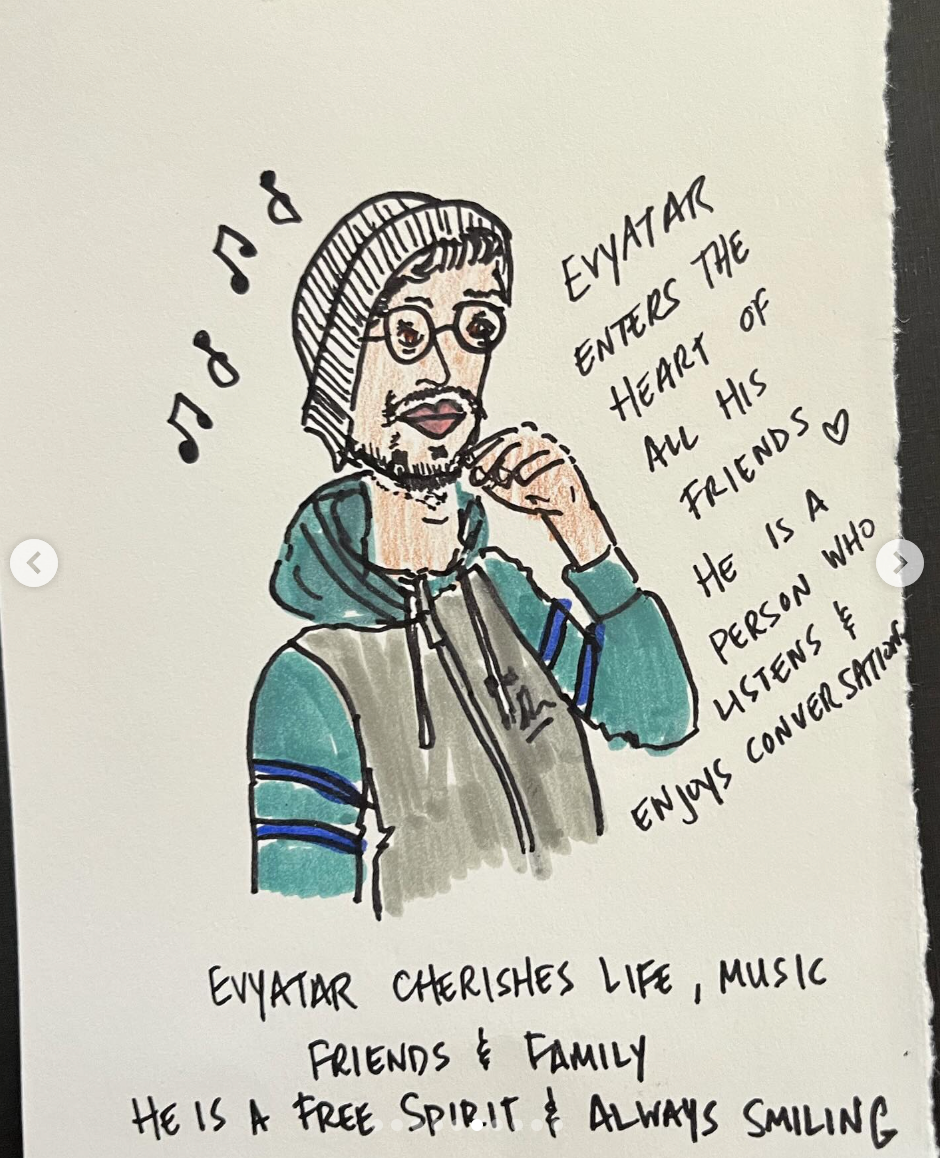 EVYATAR
ENTERS THE
HEART OF
ALL HIS
FRIENDS ♡
HE IS A
PERSON WHO
LISTENS &
ENJOYS CONVERSATION
EVYATAR CHERISHES LIFE, MUSIC
FRIENDS & FAMILY
HE IS A FREE SPIRIT & ALWAYS SMILING